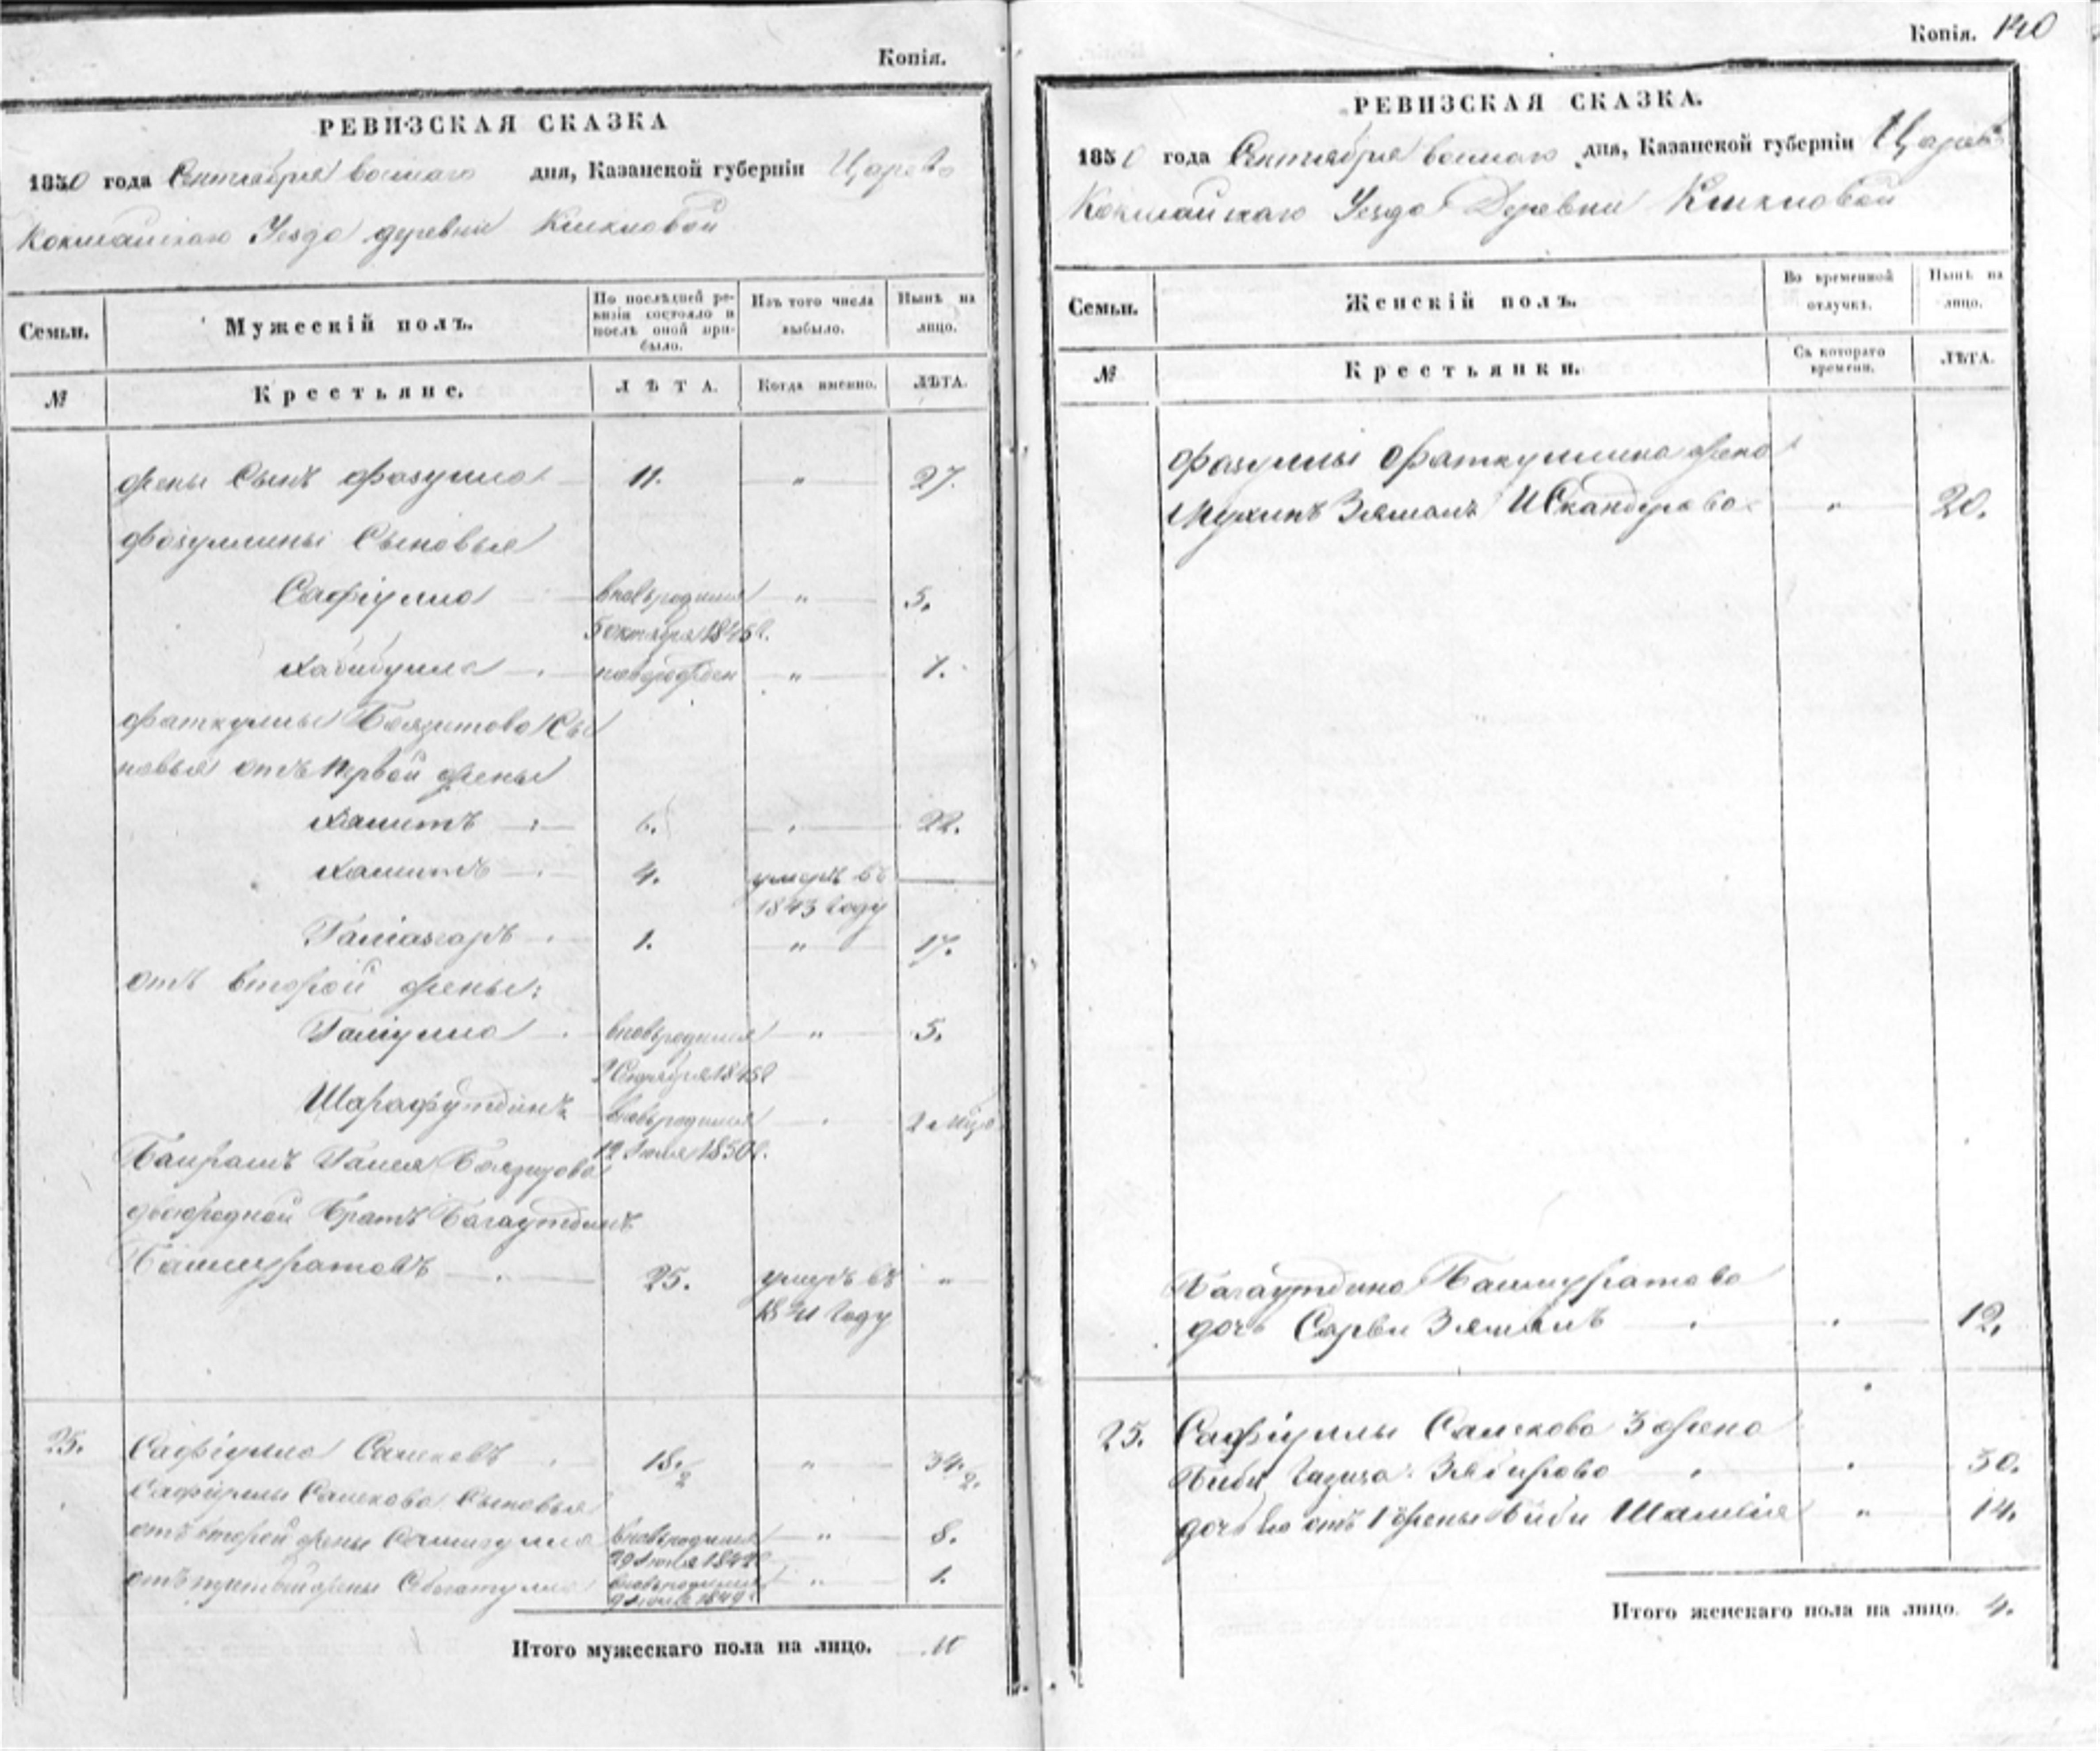 Копія.
РЕВИЗСКАЯ СКАЗКА
1850 года Сентября восмаго дня, Казанской губерніи Царево
Кокшайскаго Уезда деревни
Семьи.
Мужескій полъ.
По послѣдней ре-
визіи состояло и
послѣ оной при-
было.
Изъ того числа
выбыло.
Нынѣ на
лицо.
№
Крестьяне.
ЛѢТА.
Когда именно.
ЛѢТА.
жены Сынъ Фазулла 11. " 27.
Фазуллины Сыновья
Сафіулла вновьродился " 5.
5 октября 1845 г.
Хабибулла новорожден " 1.
Фаткуллы Баязитова Сы
новья отъ первой жены
Хамитъ 6. " 22.
4. умеръ въ
1843 году
Галіасгаръ 1. " 17.
отъ второй жены:
Галіулла вновьродился " 5.
1845 г
Шарафутдинъ вновьродился 2 мѣся
12 Июля 1850 г.
двоюродной Братъ Багаутдинъ
Башмуратовъ 25. умеръ въ "
1841 году
25. Сафіулла Салековъ 18. 1/2 " 34. 1/2.
Сафіуллы Салекова Сыновья
отъ второй жены вновьродился " 8.
29 Июля 1842
отъ третьей жены вновьродился " 1.
9 1849 г
Итого мужескаго пола на лицо. 10
Копія. 140
РЕВИЗСКАЯ СКАЗКА.
1850 года Сентября восмаго дня, Казанской губерніи Царево
Кокшайскаго Уезда Деревни
Семьи.
Женскій полъ.
Во временной
отлучкѣ.
Нынѣ на
лицо.
№
Крестьянки.
Съ котораго
времени.
ЛѢТА.
Фазуллы Фаткуллина жена
Зямалъ Искандерова " 20.
Багаутдина Башмуратова
дочь Сарви Зямалъ 12.
25. Сафіуллы Салекова 3 жена
Биби Зябирова 30.
дочь его отъ 1 жены Биби " 14.
Итого женскаго пола на лицо. 4.